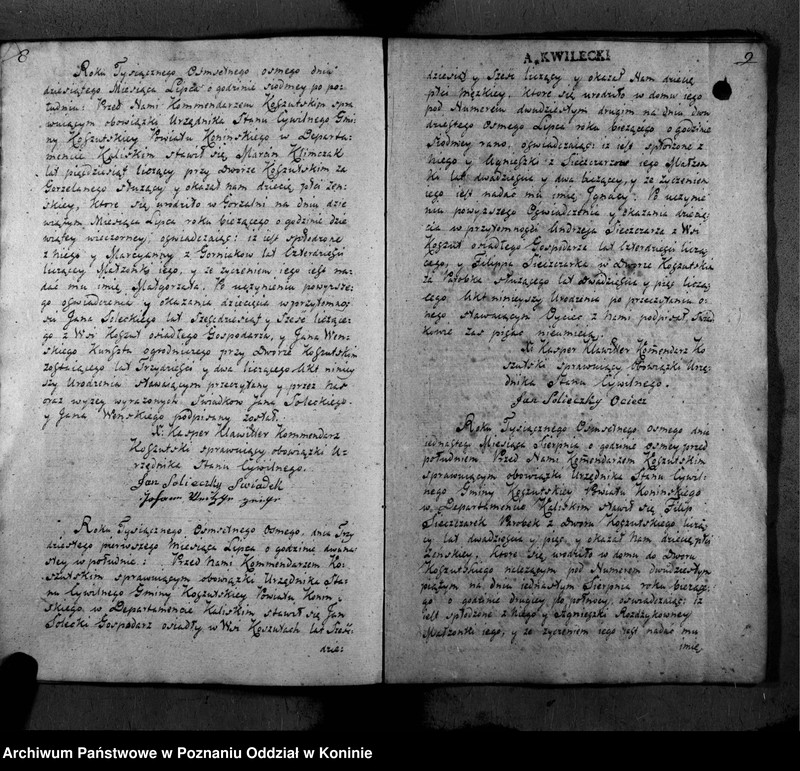 8
Roku Tysiącznego Osmsetnego osmego dnia
dziesiątego Miesiąca Lipca o godzinie siodmey po po-
łudniu: Przed Nami Kommendarzem Koszutskim spra-
wuiącym obowiązki Urzędnika Stanu Cywilnego Gmi-
ny Koszutskiey Powiatu Konińskiego w Departa-
mencie Kaliskim stawił się Marcin Klimczak
lat pięćdziesiąt liczący przy Dworze Koszutskim za
Gorzelanego służący y okazał nam dziecię płci żen-
skiey, ktore się urodziło w Gorzalni na dniu dzie
wiątym Miesiąca Lipca roku bieżącego o godzinie dzie
wiątey wieczorney, oświadczaiąc: iż iest spłodzone
z niego y Maryanny z Gornickow lat czterdzieści
liczącey Małżonki iego, y ze życzeniem iego iest na-
dać mu imię Małgorzata. Po uczynieniu powyższe-
go oświadczenia y okazania dziecięcia w przytomnoś-
ci Jana Soleckiego lat sześćdziesiąt y sześć liczące-
go z Wsi Koszut osiadłego Gospodarza, y Jana Wen-
skiego Kunsztu ogrodniczego przy Dworze Koszutskim
zostaiącego lat trzydzieści y dwa liczącego Akt niniey
szy Urodzenia stawaiącym przeczytany y przez nas
oraz wyżey wyrażonych Swiadkow Jana Soleckiego
y Jana Wenskiego podpisany został.
X: Kasper Klawitter Kommendarz
Koszutski sprawuiący obowiązki U-
rzędnika Stanu Cywilnego.
Jan Solieczky Swiadek
Roku Tysiącznego Osmsetnego Osmego, dnia Trzy
dziestego pierwszego Miesiąca Lipca o godzinie dwuna-
stey w południe: Przed Nami Kommendarzem Ko-
szutskim sprawuiącym obowiązki Urzędnika Sta-
nu Cywilnego Gminy Koszutskiey Powiatu Konin-
skiego w Departamencie Kaliskim stawił się Jan
Solecki Gospodarz osiadły w Wsi Koszutach lat sześć-
dzie:
A. KWILECKI
9
dziesiąt y sześć liczący y okazał Nam dziecię
płci męzkiey, ktore się urodziło w domu iego
pod Numerem dwudziestym drugim na dniu dwu
dziestego osmego Lipca roku bieżącego o godzinie
siodmey rano, oświadczaiąc: iż iest spłodzone z
niego y Agnieszki z Sieczcarzow iego Małżon
ki lat dwadzieścia y dwa liczącey, y ze życzeniem
iego iest nadać mu imię Jgnacy. Po uczynie-
niu powyższego Oświadczenia y okazania dziecię-
cia w przytomności Andrzeia Sieczcarza z Wsi
Koszut osiadłego Gospodarza lat czterdzieści liczą-
cego, y Filippa Sieczcarka w Dworze Koszutskim
za Parobka służącego lat dwadzieścia y pięć liczą-
cego. Akt ninieyszy Urodzenia po przeczytaniu o-
nego stawaiącym Oyciec z Nami podpisał, Swiad
kowie zaś pisać nieumieią.
X: Kasper Klawitter Komendarz Ko
szutski sprawuiący obowiązki Urzę-
dnika Stanu Cywilnego.
Jan Solieczky Ociecz
Roku Tysiącznego Osmsetnego osmego dnia
iednastego Miesiąca Sierpnia o godzinie osmey przed
południem. Przed Nami Komendarzem Koszutskim
sprawuiącym obowiązki Urzędnika Stanu Cywil-
nego Gminy Koszutskiey Powiatu Koninskiego
w Departamencie Kaliskim stawił się Filip
Sieczcarek Parobek z Dworu Koszutskiego liczą-
cy lat dwadzieścia y pięć, y okazał Nam dziecię płci
żenskiey, ktore się urodziło w domu do Dworu
Koszutskiego należącym pod Numerem dwudziestym
piątym na dniu iednastym Sierpnia roku bieżące-
go o godzinie drugiey po północy, oswiadczaiąc: iż
iest spłodzone z niego y Agnieszki Rozdzykowney
Małżonki iego, y ze życzeniem iego iest nadać mu
imię
Archiwum Państwowe w Poznaniu Oddział w Koninie